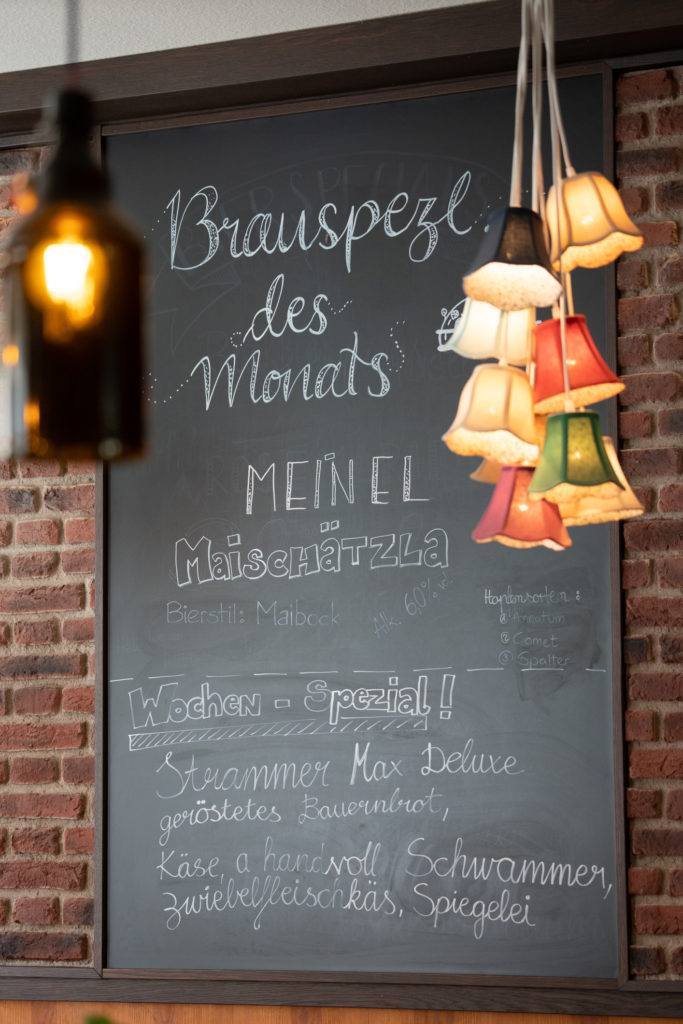 Brauspezl.
des
Monats
MEINEL
MAISCHÄTZLA
Bierstil: Maibock
Alk. 6,0% v.
Hopfensorten:
Comet
Spalter
WOCHEN - SPEZIAL!
Strammer Max Deluxe
geröstetes Bauernbrot,
Käse, a handvoll Schwammer,
zwiebelfleischkäs, Spiegelei